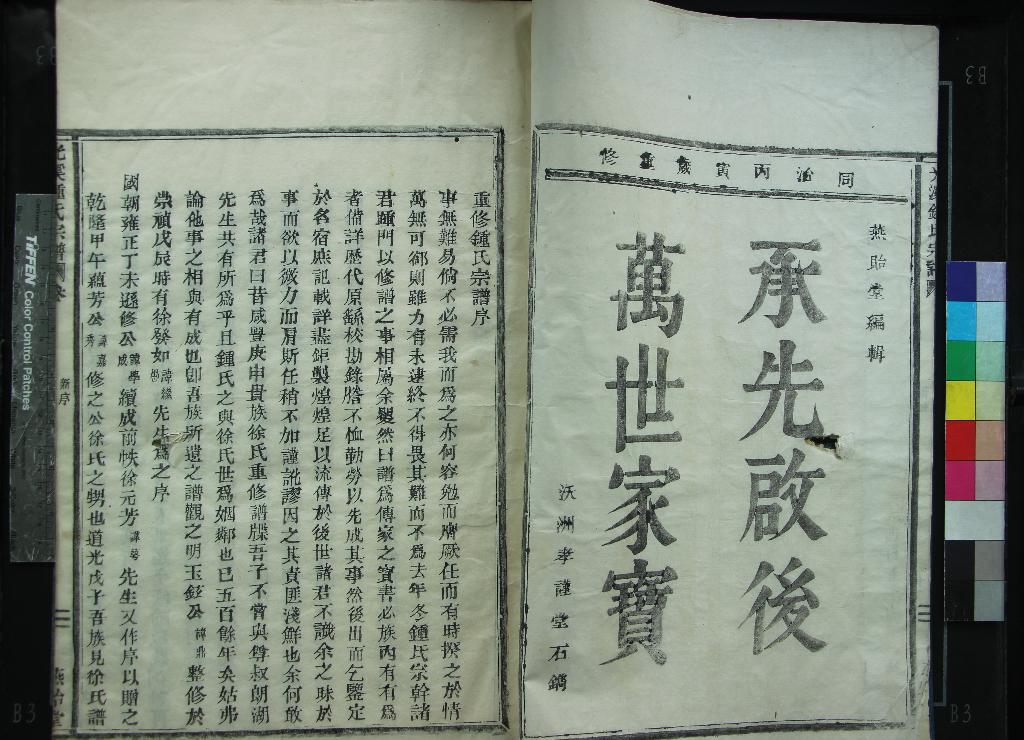 同治丙寅歲重修
燕貽堂編輯
承先啟後
萬世家寶
沃洲孝謹堂石鐫
重修鍾氏宗譜序
事無難易倘不必需我而爲之亦何容勉而膺厥任而有時揆之於情
萬無可卻則雖力有未逮終不得畏其難而不爲去年冬鍾氏宗幹諸
君踵門以修譜之事相屬余矍然曰譜爲傳家之寶書必族內有有爲
者備詳歷代原繇校勘錄謄不恤勤勞以先成其事然後出而乞鑒定
於名宿庶記載詳盡鉅製煌煌足以流傳於後世諸君不識余之昧於
事而欲以微力而屑斯任稍不加謹訛謬因之其責匪淺鮮也余何敢
爲哉諸君曰昔咸豐庚申貴族徐氏重修譜牒吾子不嘗與尊叔朗湖
先生共有所爲乎且鍾氏之與徐氏世爲姻鄰也已五百餘年矣姑弗
論他事之相與有成也卽吾族所遺之譜觀之明玉鉉公諱鼎整修於
崇禎戊辰時有徐發如先生爲之序
國朝雍正丁未遜修公諱學成續成前帙徐元芳先生又作序以贈之
乾隆甲午蘊芳公諱嘉秀修之公徐氏之甥也道光戊子吾族見徐氏譜
新序
燕貽堂
TIFFEN Color Control Patches
B3
B3
B3